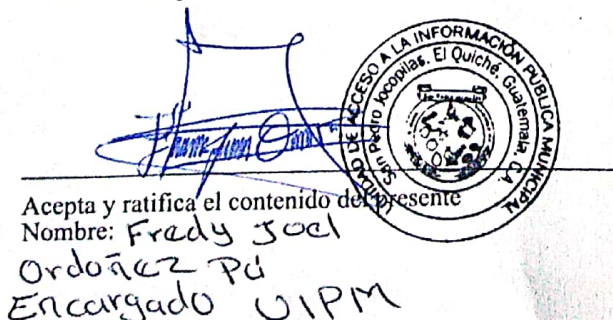 UNIDAD DE ACCESO A LA INFORMACIÓN PÚBLICA MUNICIPAL
San Pedro Jocopilas, El Quiché, Guatemala, C.A.
Acepta y ratifica el contenido del presente
Nombre: Fredy Joel
Ordoñez Pú
Encargado UIPM